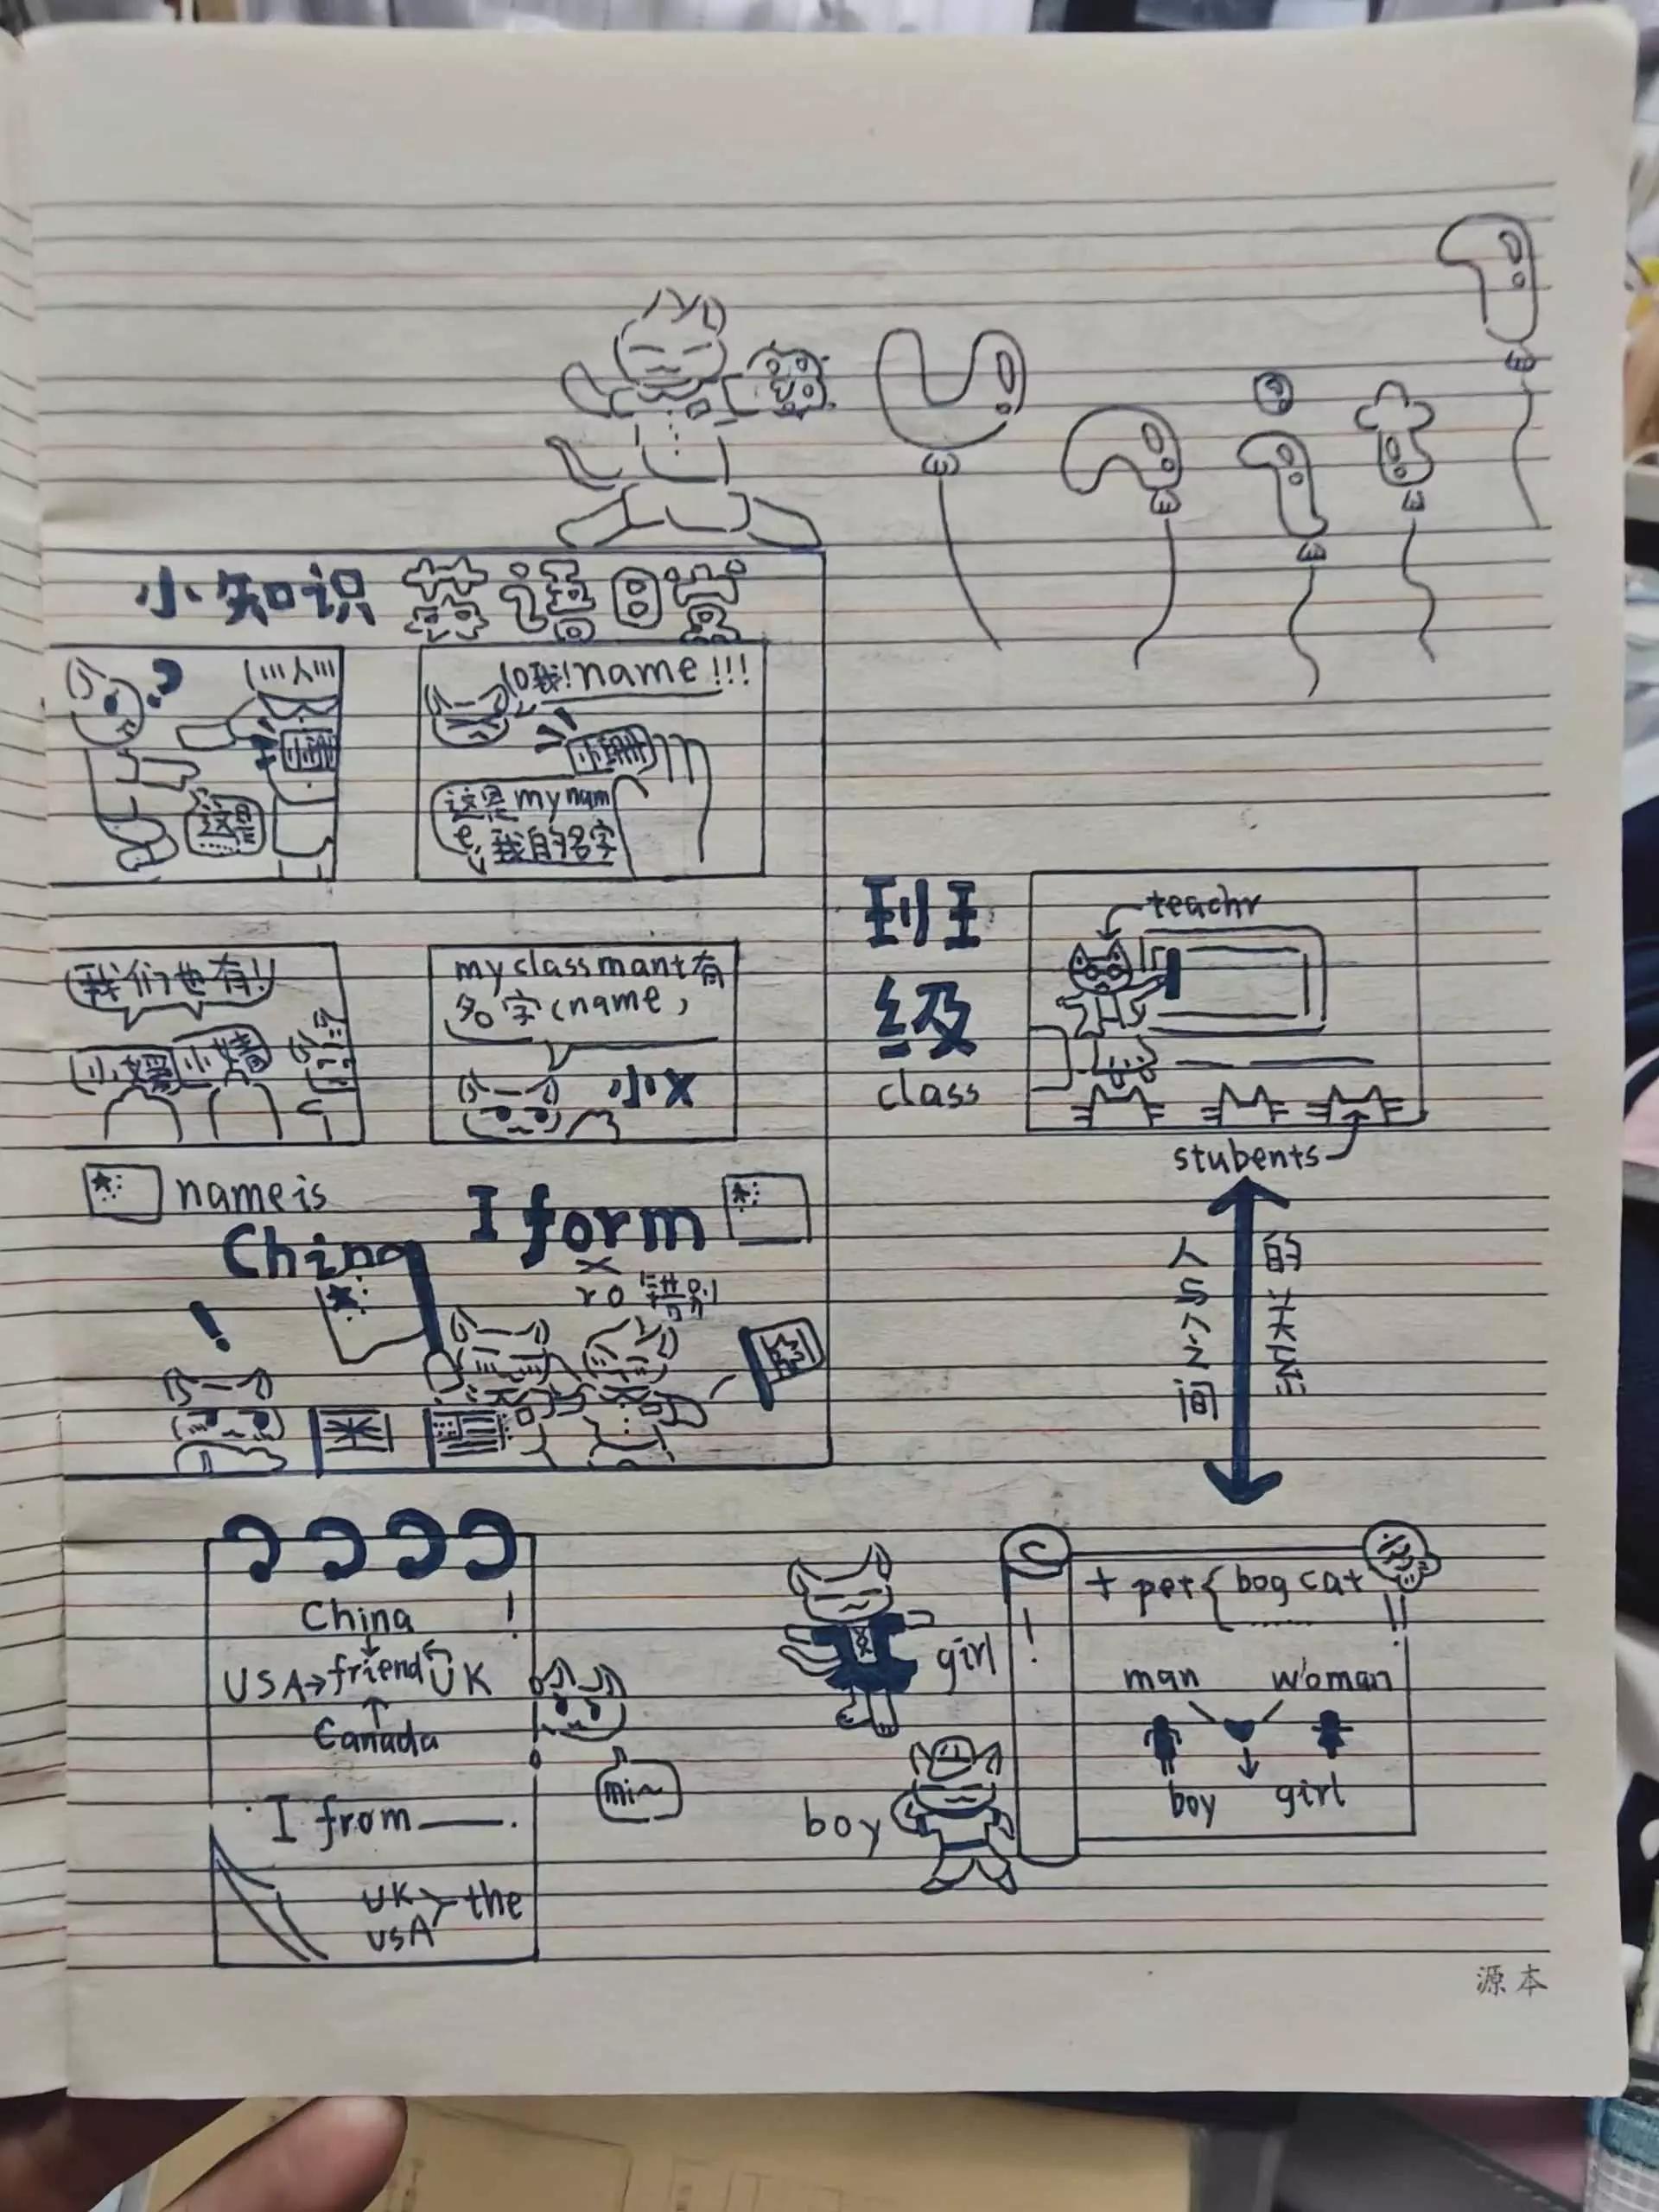 Unit 1
小知识 英语日常
这是
哦!name!!!
小册
这是my nam
e,我自的名字
我们也有!
小媛
my classmant有
名字(name,
小X
到王
级
class
teachr
stubents
name is
China
I form
×
ro 错别
!
人与个之间
的关系
China
USA→friend UK
Canada
!
I from ——.
UK
USA
the
mi~
girl
boy
!
+ pet{bog cat
......
!!
man woman
boy girl
源本